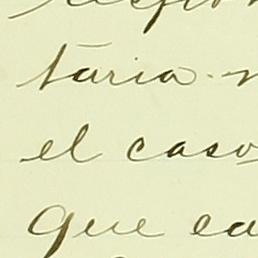 taria
el caso
que ea